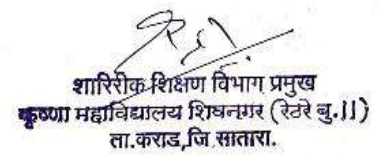 शारिरीक शिक्षण विभाग प्रमुख
कृष्णा महाविद्यालय शिवनगर (रेठरे बु.||)
ता.कराड,जि.सातारा.